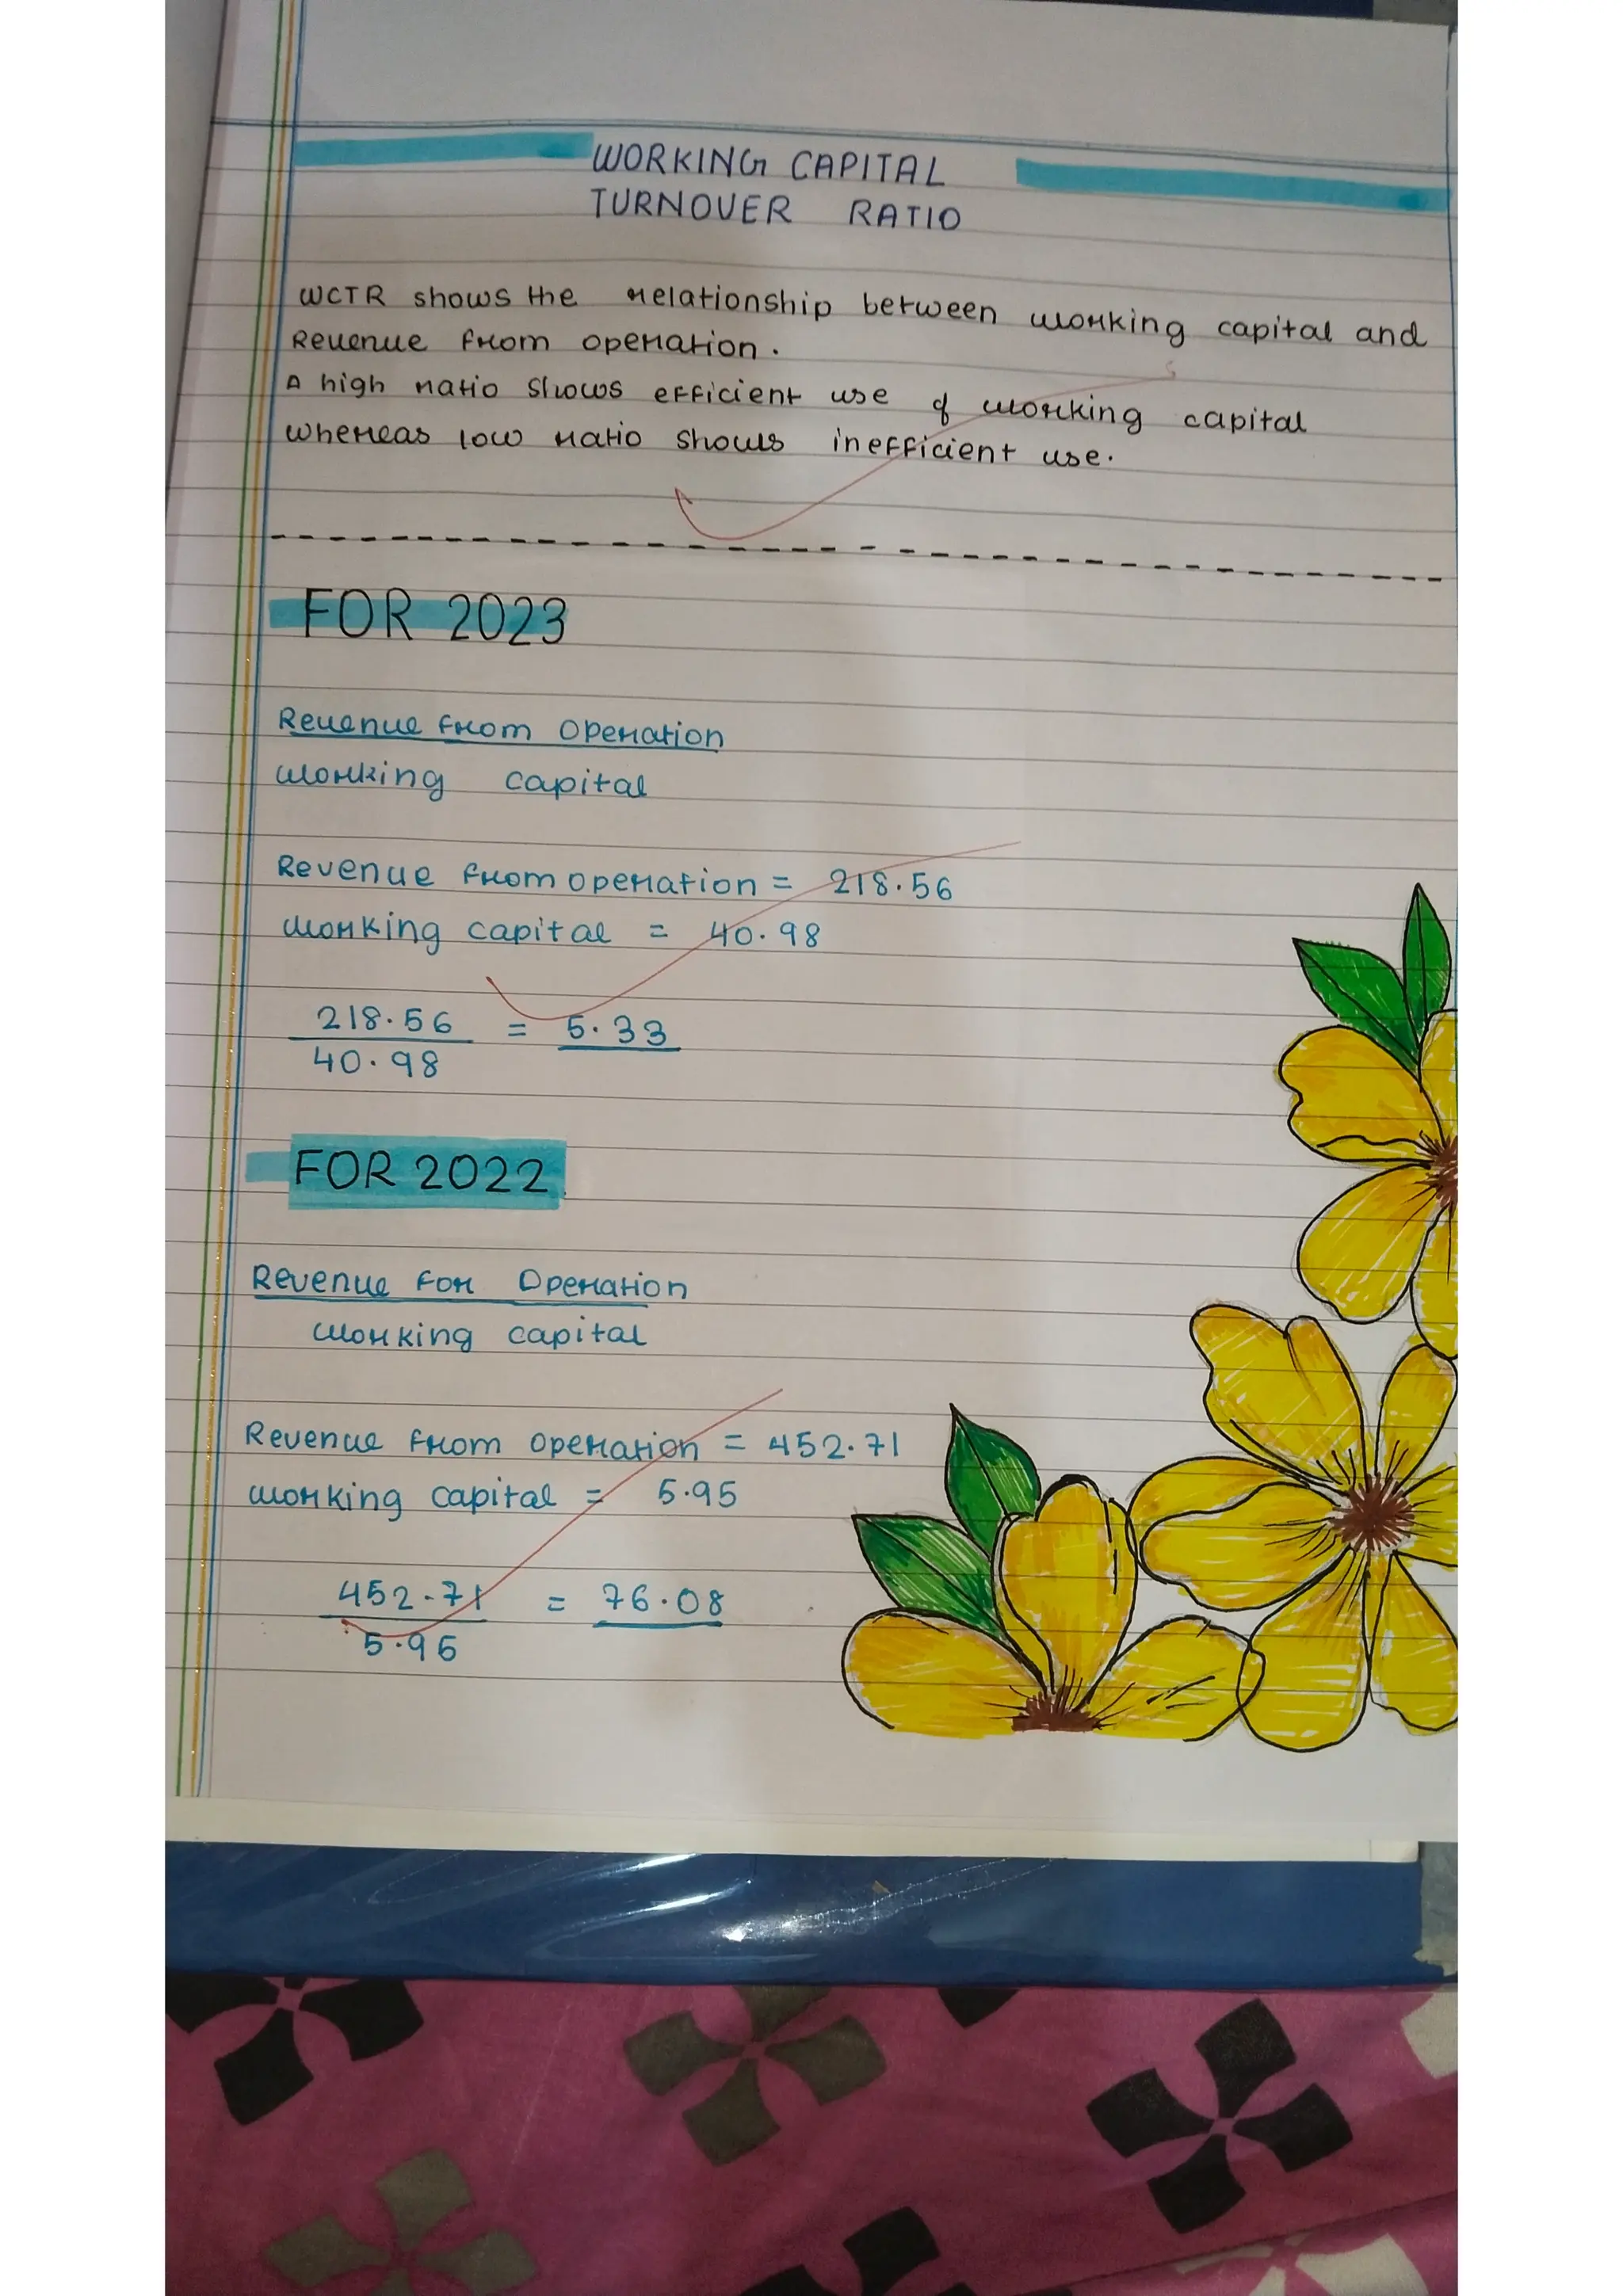 WORKING CAPITAL
TURNOVER RATIO
WCTR shows the relationship between working capital and
Revenue from operation.
A high ratio shows efficient use of working capital
whereas low ratio shows inefficient use.
FOR 2023
Revenue from Operation
working capital
Revenue from operation = 218.56
working capital = 40.98
218.56 = 5.33
40.98
FOR 2022
Revenue for Operation
working capital
Revenue from operation = 452.71
working capital = 5.95
452.71 = 76.08
5.95